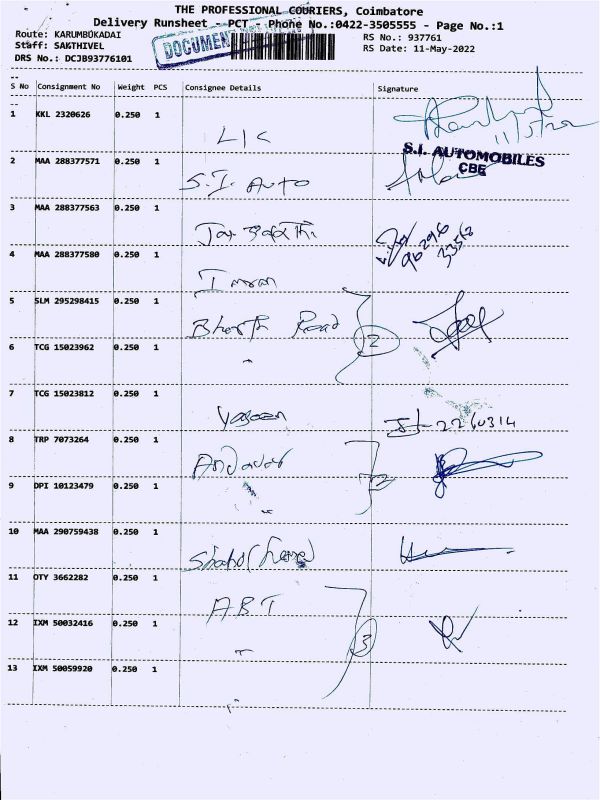 THE PROFESSIONAL COURIERS, Coimbatore
Delivery Runsheet - PCT - Phone No.:0422-3505555 - Page No.:1
Route: KARUMBUKADAI
RS No.: 937761
Staff: SAKTHIVEL
RS Date: 11-May-2022
DRS No.: DCJB93776101
DOCUMENT
S No Consignment No Weight PCS Consignee Details Signature
1 KKL 2320626 0.250 1
LIC
11/5/22
S.I. AUTOMOBILES
CBE
2 MAA 288377571 0.250 1
S.I. Auto
3 MAA 288377563 0.250 1
4 MAA 288377580 0.250 1
Imran
5 SLM 295298415 0.250 1
Road
2
6 TCG 15023962 0.250 1
7 TCG 15023812 0.250 1
Yaseen
8 TRP 7073264 0.250 1
9 DPI 10123479 0.250 1
10 MAA 290759438 0.250 1
11 OTY 3662282 0.250 1
ABT
12 IXM 50032416 0.250 1
3
13 IXM 50059920 0.250 1